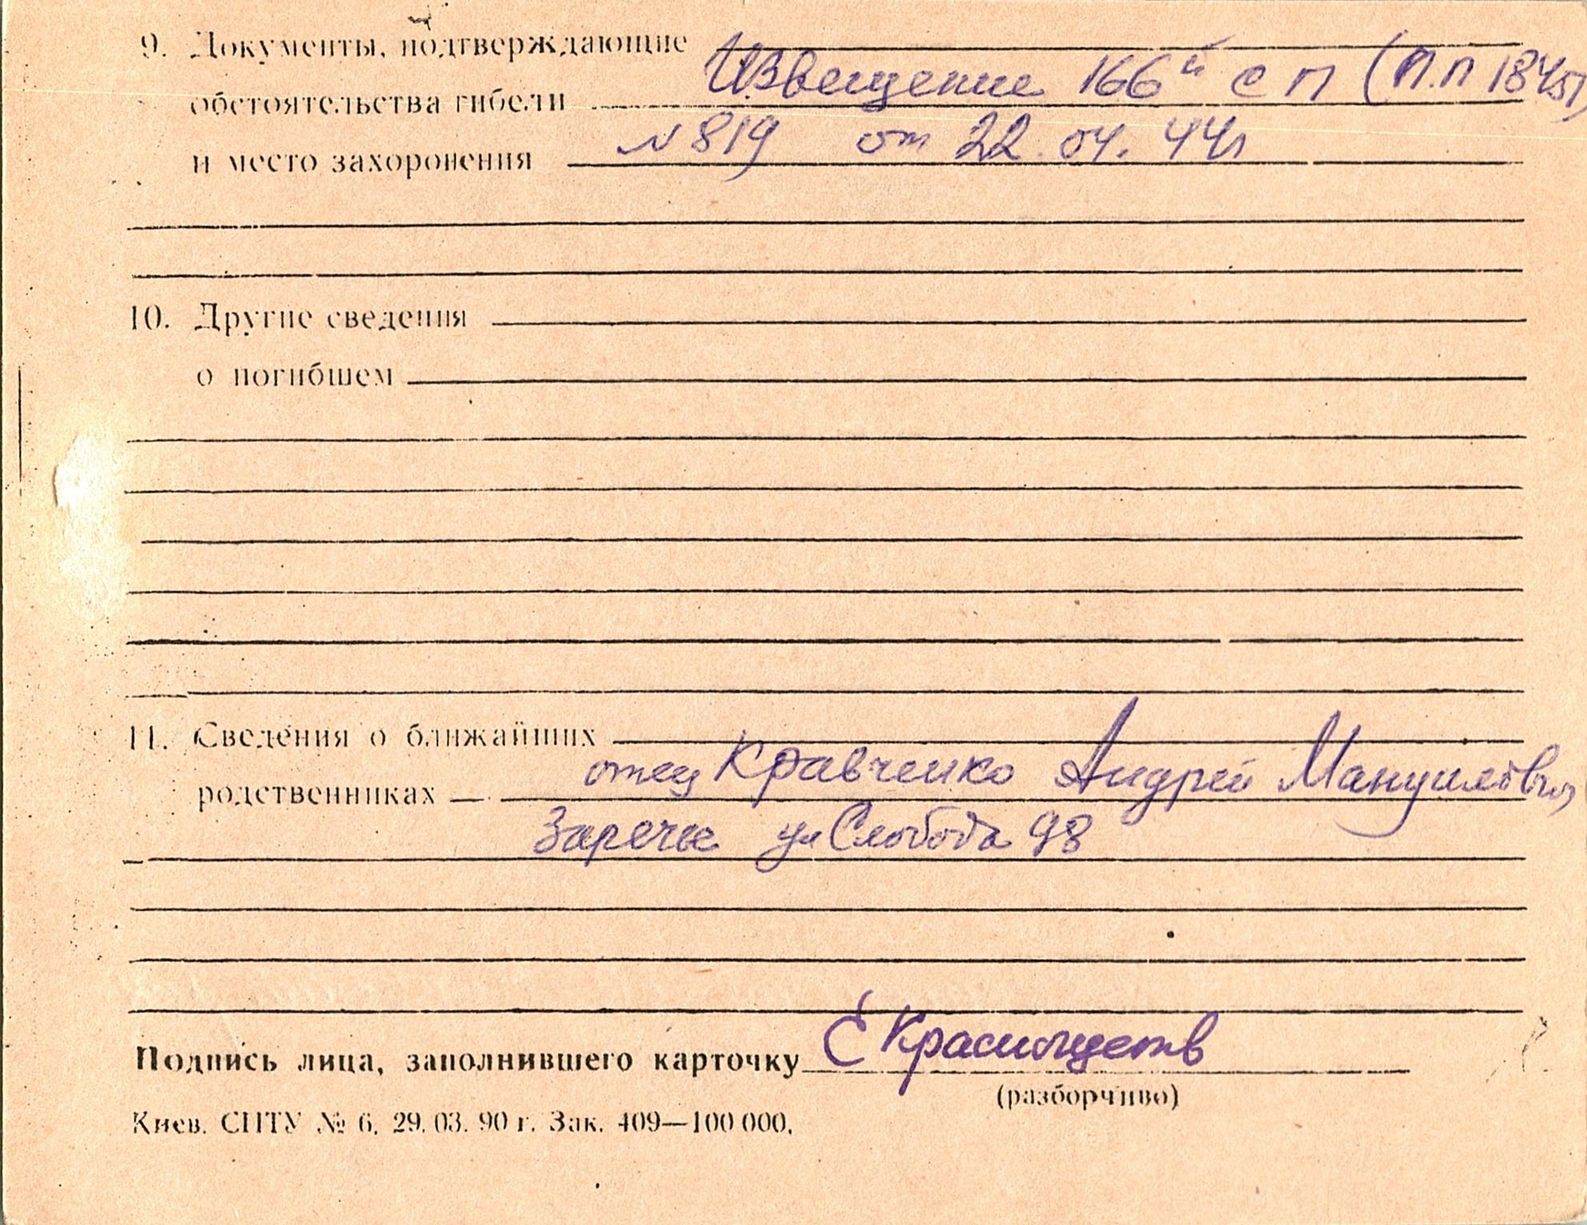 9. Документы, подтверждающие
обстоятельства гибели Извещение 166й с п (п.п 18451)
и место захоронения №819 от 22.04.44г
10. Другие сведения
о погибшем
11. Сведения о ближайших
родственниках отец Кравченко Андрей Мануилович
Заречье ул Слобода 98
Подпись лица, заполнившего карточку Е
(разборчиво)
Киев. СПТУ № 6. 29.03.90 г. Зак. 409—100 000.